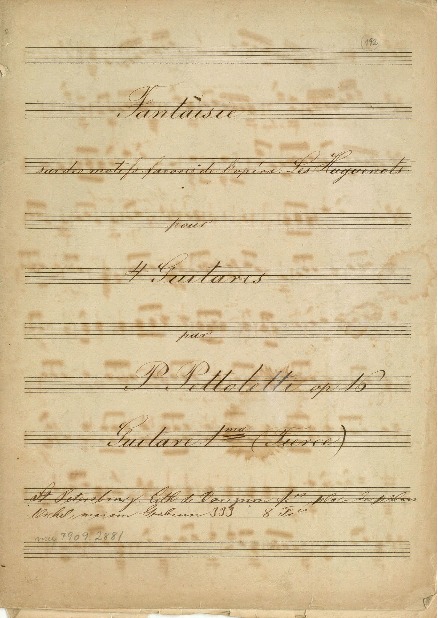 192
Fantaisie
sur des motifs favoris de l'opéra: Les Huguenots
pour
4 Guitares
par
P. Pettoletti op. 15
Guitare 1ma (Tierce)
St Petersburg
333 8
mu 7909.2881